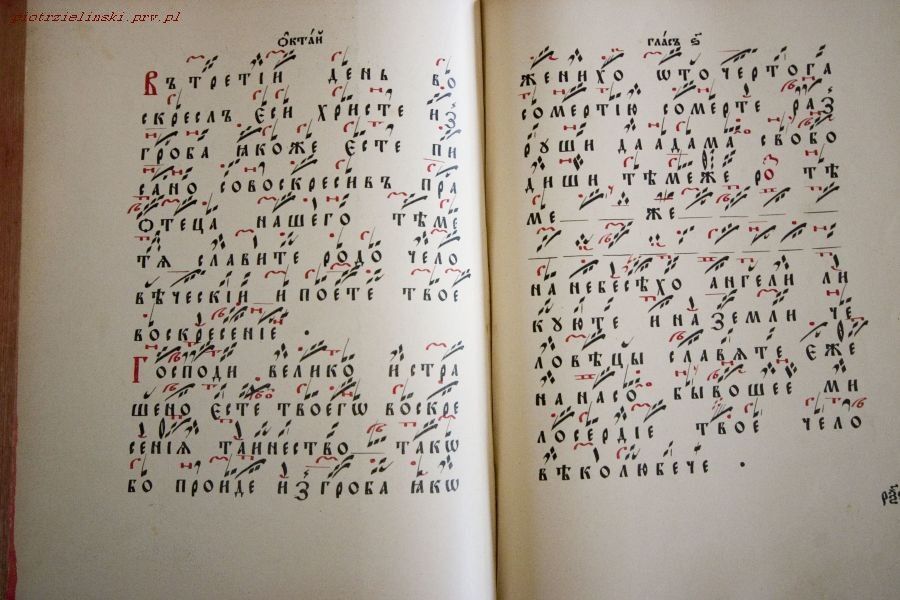 piotrzielinski.prv.pl
Ѻктай
Въ третїй день во
скреслъ еси христе и з
гроба ꙗкоже єсте пи
сано совоскресивъ пра
отеца нашего тѣме
тѧ славите родо чело
вѣческїй и поете твое
воскресенїе .
Господи велико и стра
шено єсте твоегѡ воскре
сенїѧ таинество такѡ
во проиде из гроба ꙗкѡ
гласъ ѕ
женихо ѿ чертога
сомертїю сомерте раз
рꙋши да адама свобо
диши тѣмеже ро тѣ
ме же
на небесѣхо ангели ли
кꙋюте и на земли че
ловѣцы славѧте єже
на насо бывошее ми
лосердїе твое чело
вѣколюбече .